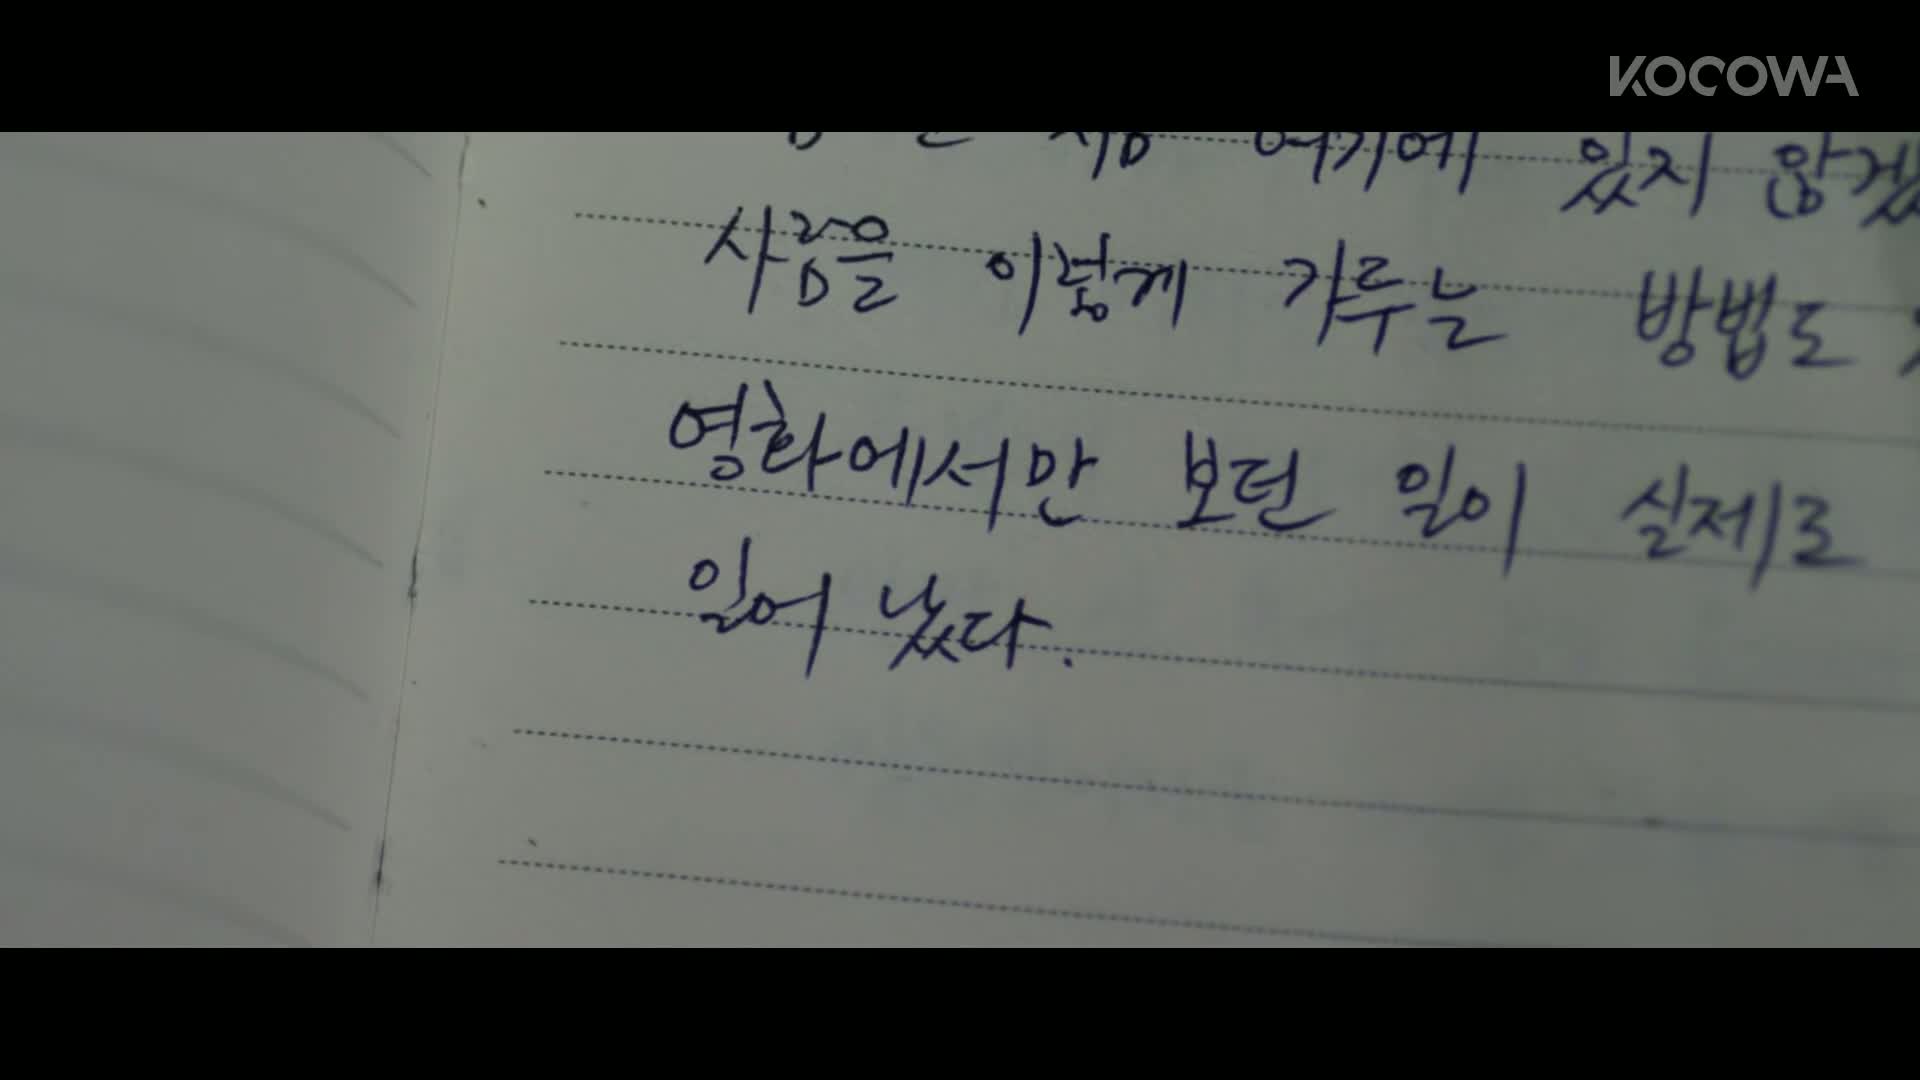 KOCOWA
여기에 있지 않겠
사람을 이렇게 가루는 방법도
영화에서만 보던 일이 실제로
일어 났다.